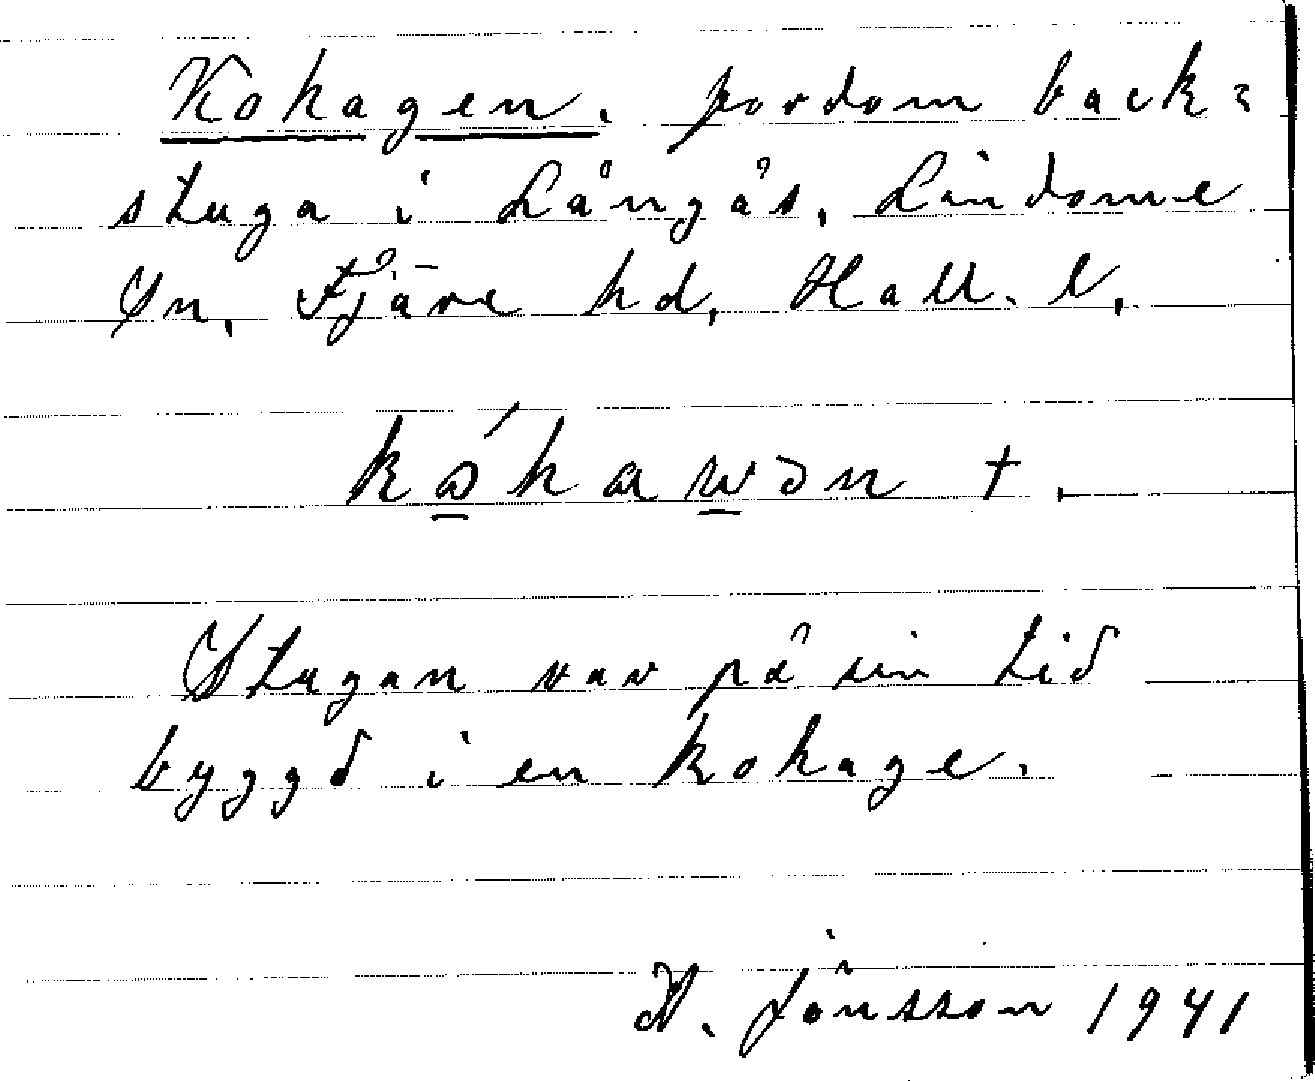 Kohagen. fordom back=
stuga i Långås, Lindome
Sn, Fjäre hd, Hall. l,
kώ̲haw̲ən +.
Stugan var på sin tid
byggd i en kohage.
H. Jönsson 1941